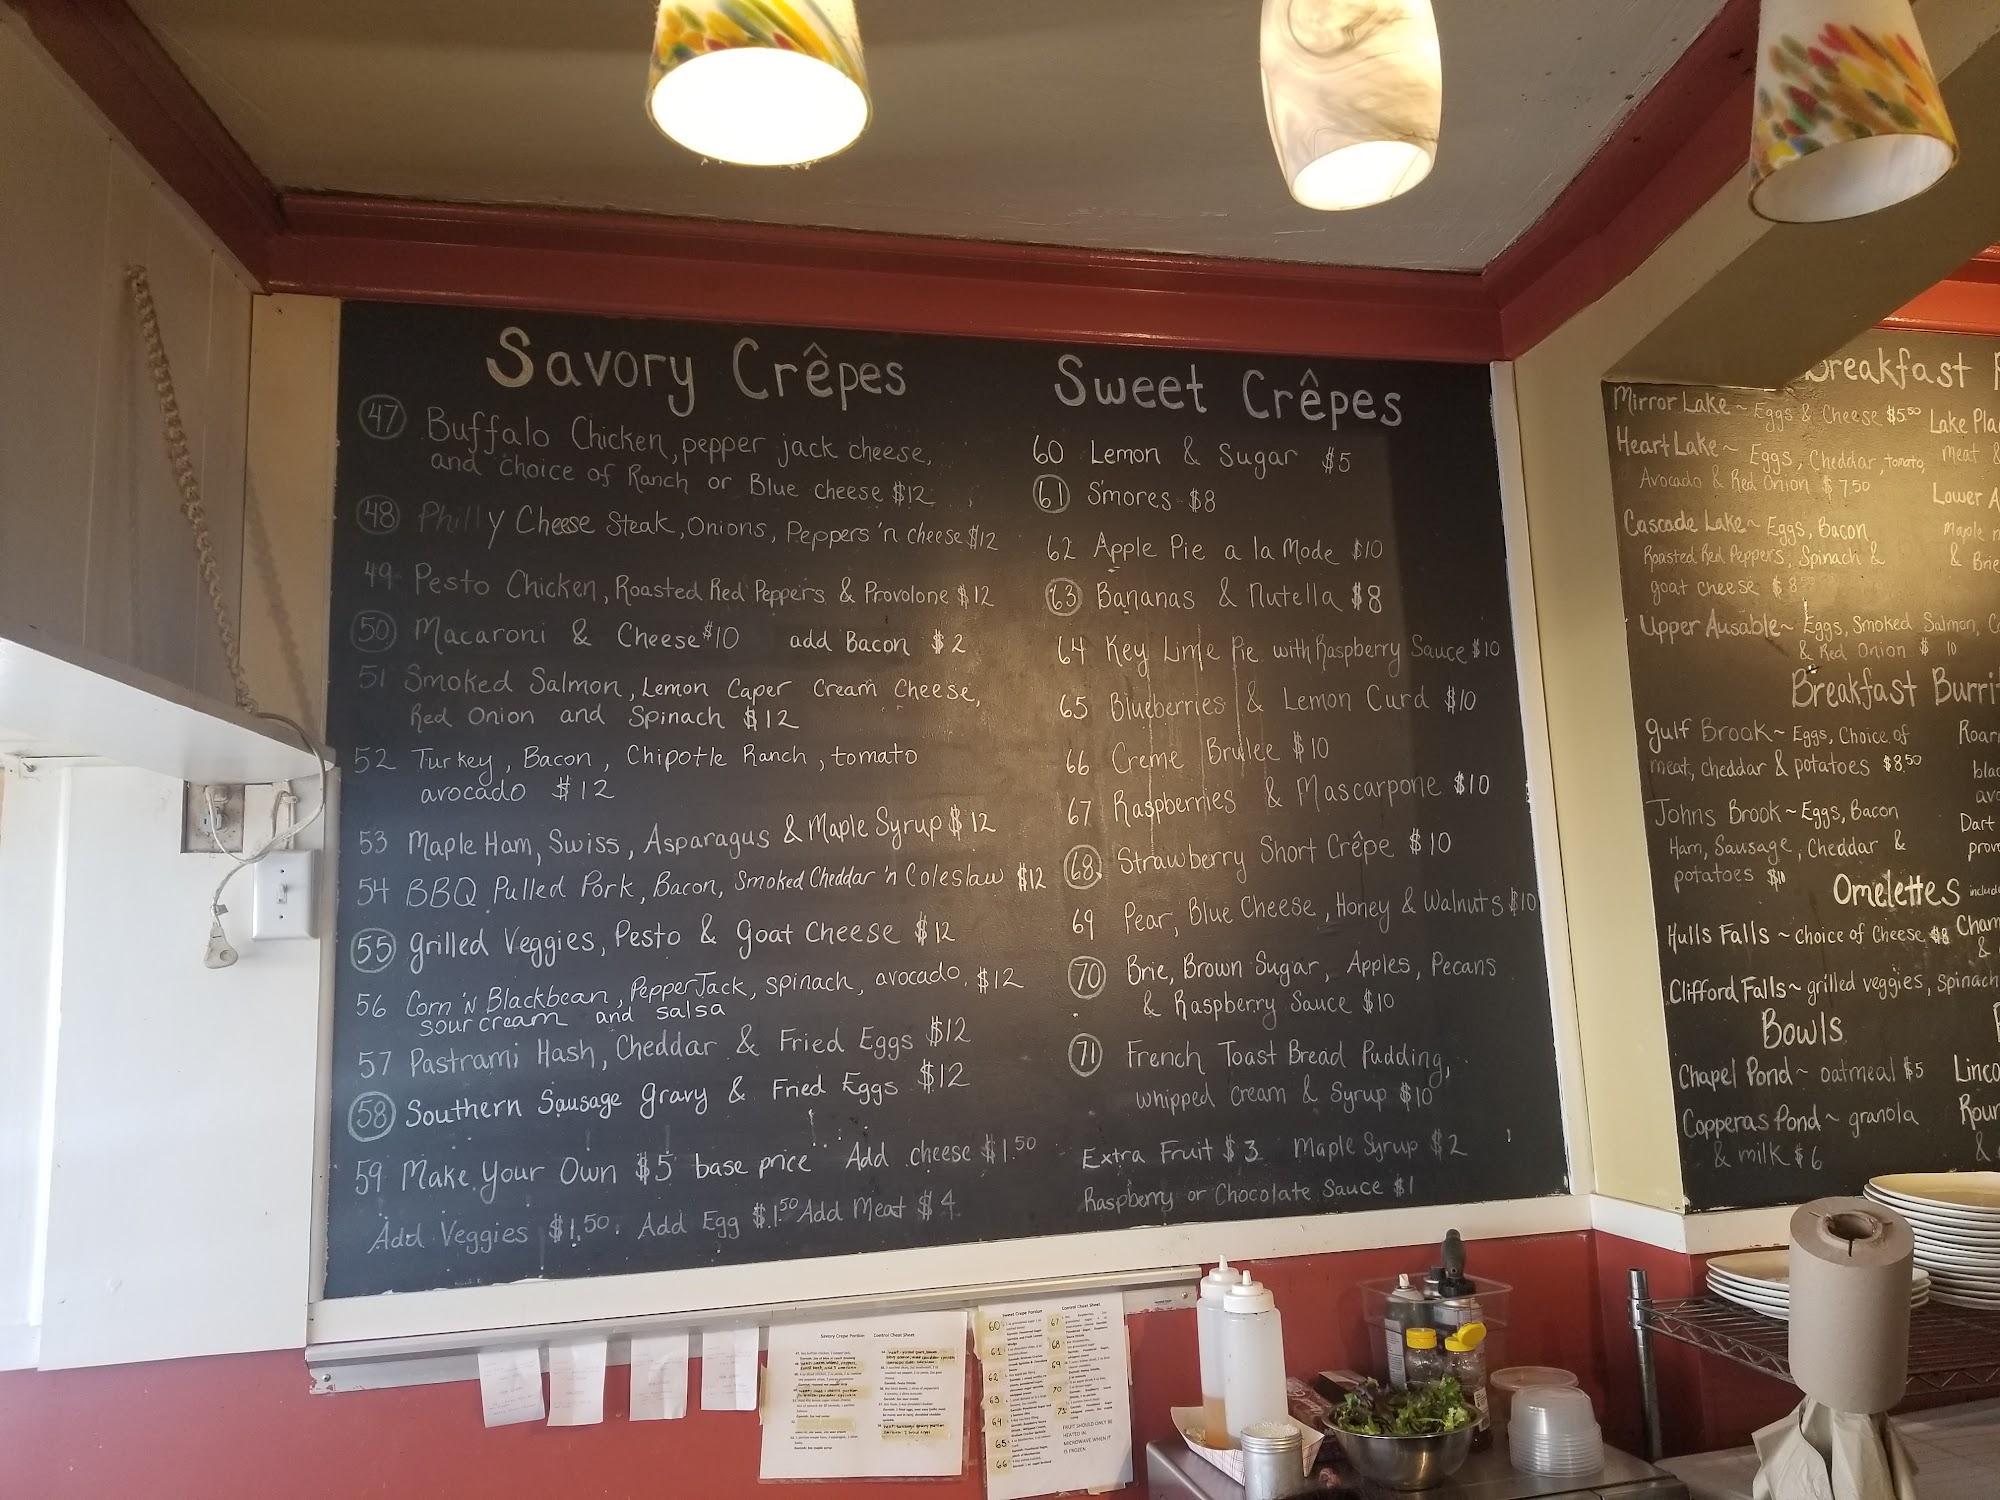 Savory Crêpes
47 Buffalo Chicken, pepper jack cheese,
and choice of Ranch or Blue cheese $12
48 Philly Cheese Steak, Onions, Peppers 'n cheese $12
49 Pesto Chicken, Roasted Red Peppers & Provolone $12
50 Macaroni & Cheese $10 add Bacon $2
51 Smoked Salmon, Lemon Caper Cream Cheese,
Red Onion and Spinach $12
52 Turkey, Bacon, Chipotle Ranch, tomato
avocado $12
53 Maple Ham, Swiss, Asparagus & Maple Syrup $12
54 BBQ Pulled Pork, Bacon, Smoked Cheddar 'n Coleslaw $12
55 grilled Veggies, Pesto & goat Cheese $12
56 Corn 'n Blackbean, PepperJack, spinach, avocado, $12
sour cream and salsa
57 Pastrami Hash, Cheddar & Fried Eggs $12
58 Southern Sausage gravy & Fried Eggs $12
59 Make Your Own $5 base price Add cheese $1.50
Add Veggies $1.50. Add Egg $1.50 Add Meat $4
Sweet Crêpes
60 Lemon & Sugar $5
61 S'mores $8
62 Apple Pie a la Mode $10
63 Bananas & Nutella $8
64 Key Lime Pie with Raspberry Sauce $10
65 Blueberries & Lemon Curd $10
66 Creme Brulee $10
67 Raspberries & Mascarpone $10
68 Strawberry Short Crêpe $10
69 Pear, Blue Cheese, Honey & Walnuts $10
70 Brie, Brown Sugar, Apples, Pecans
& Raspberry Sauce $10
71 French Toast Bread Pudding,
whipped cream & Syrup $10
Extra Fruit $3 Maple Syrup $2
Raspberry or Chocolate Sauce $1
Breakfast
Mirror Lake ~ Eggs & Cheese $5.50
Heart Lake ~ Eggs, Cheddar, tomato,
Avocado & Red Onion $7.50
Cascade Lake ~ Eggs, Bacon
Roasted Red Peppers, Spinach &
goat cheese $8.50
Upper Ausable ~ Eggs, Smoked Salmon,
& Red Onion $10
Lake
meat &
Lower
maple
& Brie
Breakfast
Gulf Brook ~ Eggs, Choice of
meat, cheddar & potatoes $8.50
Johns Brook ~ Eggs, Bacon
Ham, Sausage, Cheddar &
potatoes $10
Dart
Omelettes
Hulls Falls ~ choice of Cheese $8
Clifford Falls ~ grilled veggies, spinach
&
Bowls
Chapel Pond ~ oatmeal $5
Copperas Pond ~ granola
& milk $6
&
Savory Crepe Portion Control Cheat Sheet
Sweet Crepe Portion Control Cheat Sheet
60
61
62
63
64
65
66
67
68
69
70
71
FRUIT SHOULD ONLY BE
HEATED IN
MICROWAVE WHEN IT
IS FROZEN